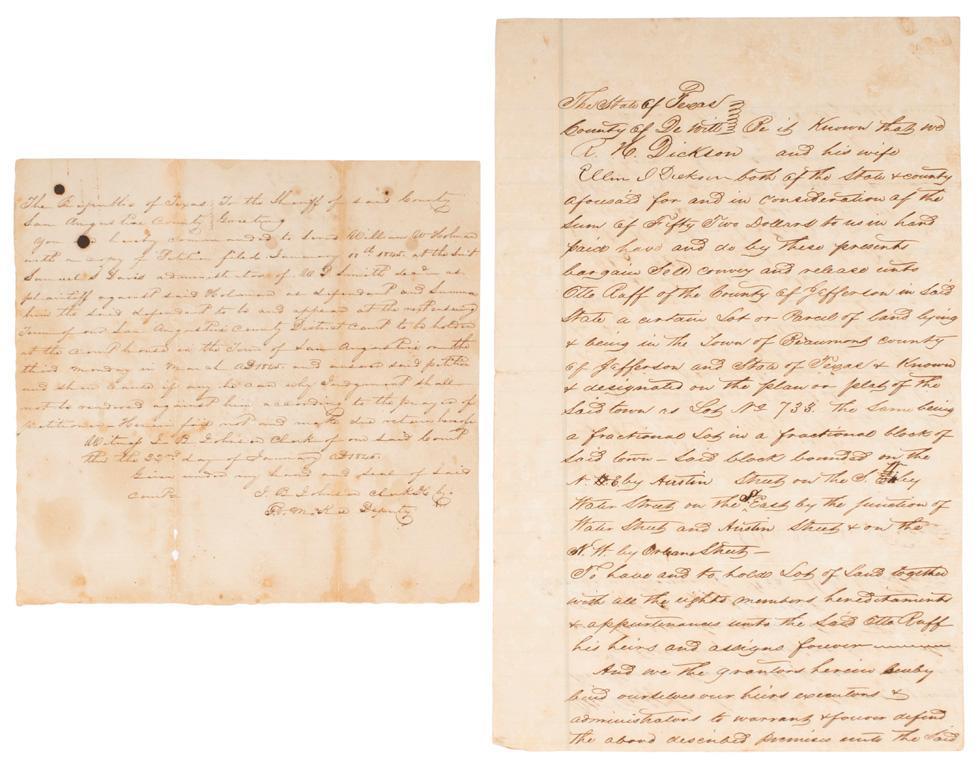 The Republic of Texas, To the Sheriff of said County
San Augustine County, Greeting
You are hereby commanded to serve William W Holman
with a copy of Petition filed January 11th 1845. at the suit
Samuel S Davis administrator of W Smith dead as
plaintiff against said Holman as defendant and Summon
him the said defendant to be and appear at the next ensuing
Term of our San Augustine County District Court to be holden
at the court house in the Town of San Augustine on the
third monday in March AD 1845. and answer said petition
and show cause if any he can why Judgment shall
not be rendered against him according to the prayer of
petitioner Herein fail not and make due return hereof
Witness I. B. Johnson Clerk of our said Court
this the 22nd day of January AD 1845.
Given under my hand and seal of said
court
I. B. Johnson Clerk
McKee Deputy
The State of Texas
County of De Witt Be it Known that we
R. H. Dickson and his wife
Ellen J Dickson both of the State & county
afousaid for and in consideration of the
sum of Fifty Two Dollars to us in hand
paid have and do by these presents
bargain Sold convey and release unto
Otto Ruff of the County of Jefferson in Said
State a certain Lot or Parcel of land lying
& being in the Town of Beaumont county
of Jefferson and State of Texas & Known
& designated on the plan or plat of the
Said town as Lot No 733. The same being
a fractional Lot in a fractional block of
Said town - Said block bounded on the
N. E by Austin Street on the S. by
Water Street on the East by the junction of
Water Street and Austin Street & on the
N. W. by Orleans Street -
To have and to hold Lot of Land together
with all the rights members hereditaments
& appurtenances unto the Said Otto Ruff
his heirs and assigns forever
And we the grantors herein
bind ourselves our heirs executors &
administrators to warrant & forever defend
the above described premises unto the Said